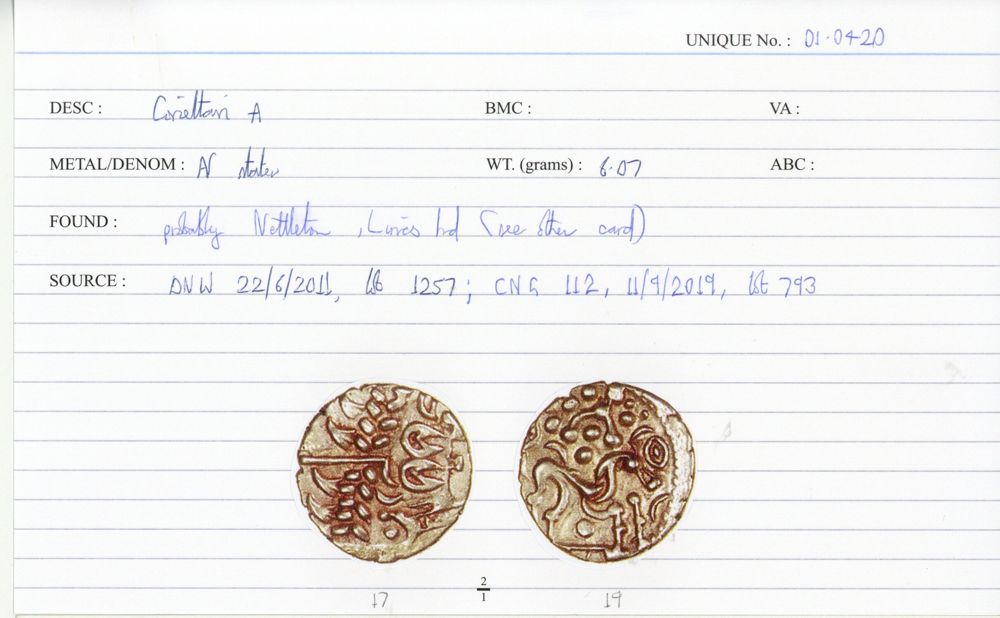 UNIQUE No. : 01·0420
DESC : Corieltavi A BMC : VA :
METAL/DENOM : AV stater WT. (grams) : 6·07 ABC :
FOUND : probably Nettleton, Lincs hd (see other card)
SOURCE : DNW 22/6/2011, lot 1257; CNG 112, 11/9/2019, lot 793
2
1
17 19